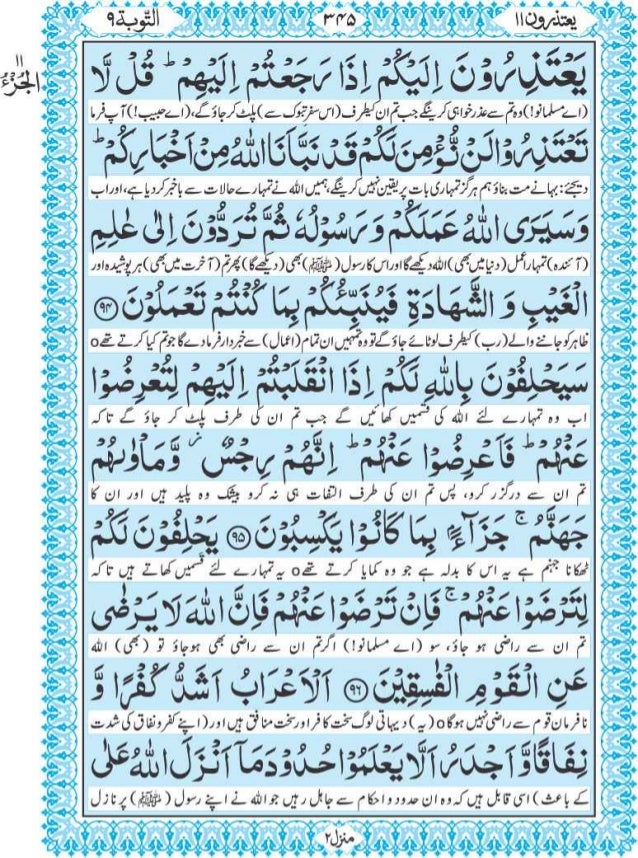 یعتذرون ۱۱
۳۴۵
التوبة ۹
۱۱
الجزء
يَعْتَذِرُوْنَ اِلَيْكُمْ اِذَا رَجَعْتُمْ اِلَيْهِمْ ؕ قُلْ لَّا
(اے مسلمانو!) وہ تم سے عذر خواہی کرینگے جب تم ان کیطرف (اس سفرِ تبوک سے) پلٹ کر جاؤ گے، (اے حبیب!) آپ فرما
تَعْتَذِرُوْا لَنْ نُّؤْمِنَ لَكُمْ قَدْ نَبَّاَنَا اللّٰهُ مِنْ اَخْبَارِكُمْ ؕ
دیجئے: بہانے مت بناؤ ہم ہرگز تمہاری بات پر یقین نہیں کرینگے، ہمیں اللہ نے تمہارے حالات سے باخبر کر دیا ہے، اور اب
وَ سَيَرَى اللّٰهُ عَمَلَكُمْ وَ رَسُوْلُهٗ ثُمَّ تُرَدُّوْنَ اِلٰى عٰلِمِ
(آئندہ) تمہارا عمل (دنیا میں بھی) اللہ دیکھے گا اور اس کا رسول (ﷺ) بھی (دیکھے گا) پھر تم (آخرت میں بھی) ہر پوشیدہ اور
الْغَيْبِ وَ الشَّهَادَةِ فَيُنَبِّئُكُمْ بِمَا كُنْتُمْ تَعْمَلُوْنَ ﴿۹۴﴾
ظاہر کو جاننے والے (رب) کیطرف لوٹائے جاؤ گے تو وہ تمہیں ان تمام (اعمال) سے خبردار فرما دے گا جو تم کیا کرتے تھے o
سَيَحْلِفُوْنَ بِاللّٰهِ لَكُمْ اِذَا انْقَلَبْتُمْ اِلَيْهِمْ لِتُعْرِضُوْا
اب وہ تمہارے لئے اللہ کی قسمیں کھائیں گے جب تم ان کی طرف پلٹ کر جاؤ گے تاکہ
عَنْهُمْ ؕ فَاَعْرِضُوْا عَنْهُمْ ؕ اِنَّهُمْ رِجْسٌ ؗ وَّ مَاْوٰىهُمْ
تم ان سے درگزر کرو، پس تم ان کی طرف التفات ہی نہ کرو بیشک وہ پلید ہیں اور ان کا
جَهَنَّمُ ۚ جَزَآءًۢ بِمَا كَانُوْا يَكْسِبُوْنَ ﴿۹۵﴾ يَحْلِفُوْنَ لَكُمْ
ٹھکانا جہنم ہے یہ اس کا بدلہ ہے جو وہ کمایا کرتے تھے o یہ تمہارے لئے قسمیں کھاتے ہیں تاکہ
لِتَرْضَوْا عَنْهُمْ ۚ فَاِنْ تَرْضَوْا عَنْهُمْ فَاِنَّ اللّٰهَ لَا يَرْضٰى
تم ان سے راضی ہو جاؤ، سو (اے مسلمانو!) اگر تم ان سے راضی بھی ہو جاؤ تو (بھی) اللہ
عَنِ الْقَوْمِ الْفٰسِقِيْنَ ﴿۹۶﴾ اَلْاَعْرَابُ اَشَدُّ كُفْرًا وَّ
نافرمان قوم سے راضی نہیں ہوگا o (یہ) دیہاتی لوگ سخت کافر اور سخت منافق ہیں اور (اپنے کفر و نفاق کی شدت
نِفَاقًا وَّ اَجْدَرُ اَلَّا يَعْلَمُوْا حُدُوْدَ مَاۤ اَنْزَلَ اللّٰهُ عَلٰى
کے باعث) اسی قابل ہیں کہ وہ ان حدود و احکام سے جاہل رہیں جو اللہ نے اپنے رسول (ﷺ) پر نازل
منزل ۲